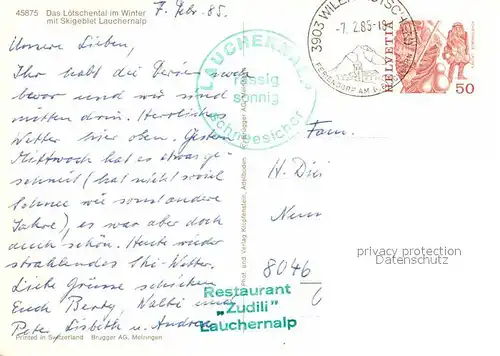 45875 Das Lötschental im Winter
mit Skigebiet Lauchernalp
7. Febr. 85.
Unsere Lieben,
Ihr habt die Ferien noch
bevor und wir sind
mitten drin. Herrliches
Wetter hier oben. Gestern
Mittwoch hat es etwas ge-
schneit (hat nicht soviel
Schnee wie sonst andere
Jahre), es war aber doch
auch schön. Heute wieder
strahlendes Ski-Wetter.
Liebe Grüsse schicken
Euch Berty, Walti und
Peter, Lisbeth u. Andrea
Printed in Switzerland Brugger AG, Meiringen
LAUCHERNALP
rassig
sonnig
schneesicher
Phot. und Verlag Klopfenstein, Adelboden
3903 WILER (LÖTSCHEN)
-7. 2.85-18
FERIENDORF AM
HELVETIA
50
Fam.
H.
8046
privacy protection
Datenschutz
Restaurant
„Zudili"
Lauchernalp